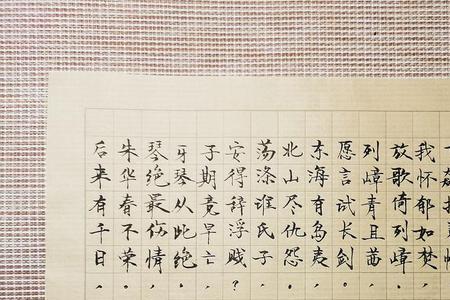 我怀郁如焚，
放歌倚列嶂。
列嶂青且茜，
愿言试长剑。
东海有岛夷，
北山尽仇怨。
荡涤谁氏子，
安得辞浮贱？
子期竟早亡，
牙琴从此绝。
琴绝最伤情，
朱华春不荣。
后来有千日，